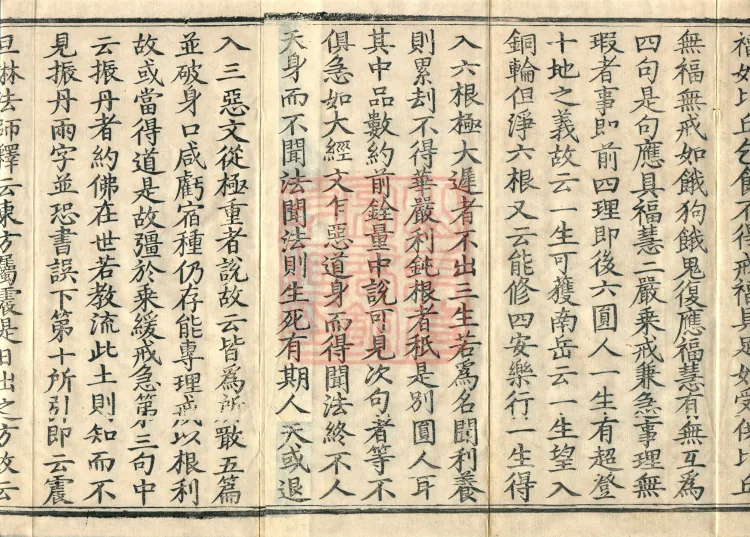 福如比丘乞食不得戒福具足如受供比丘
無福無戒如餓狗餓鬼復應福慧有無互爲
四句是句應具福慧二嚴乗戒兼急事理無
瑕者事即前四理即後六圓人一生有超登
十地之義故云一生可獲南岳云一生望入
銅輪但淨六根又云能修四安樂行一生得
入六根極大遲者不出三生若爲名聞利養
則累刼不得華嚴利鈍根者秖是別圓人耳
其中品數約前銓量中説可見次句者等不
俱急如大經文乍惡道身而得聞法終不人
天身而不聞法聞法則生死有期人天或退
入三惡文從極重者說故云皆爲所敢五篇
並破身口咸虧宿種仍存能專理戒以根利
故或當得道是故彊於乘緩戒急第三句中
云振丹者約佛在世若教流此土則知而不
見振丹兩字並恐書誤下第十所引即云震
旦琳法師釋云東方屬震是日出之方故云